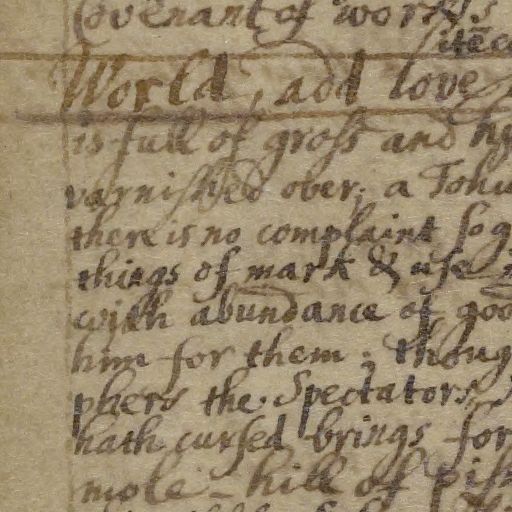 Covenant of works
World, add love
is full of gross and
varnished over; a Tohu
there is no complaint so
things of mark & use
with abundance of
him for them; though
phers the Spectators
hath cursed brings for
mole-hill of